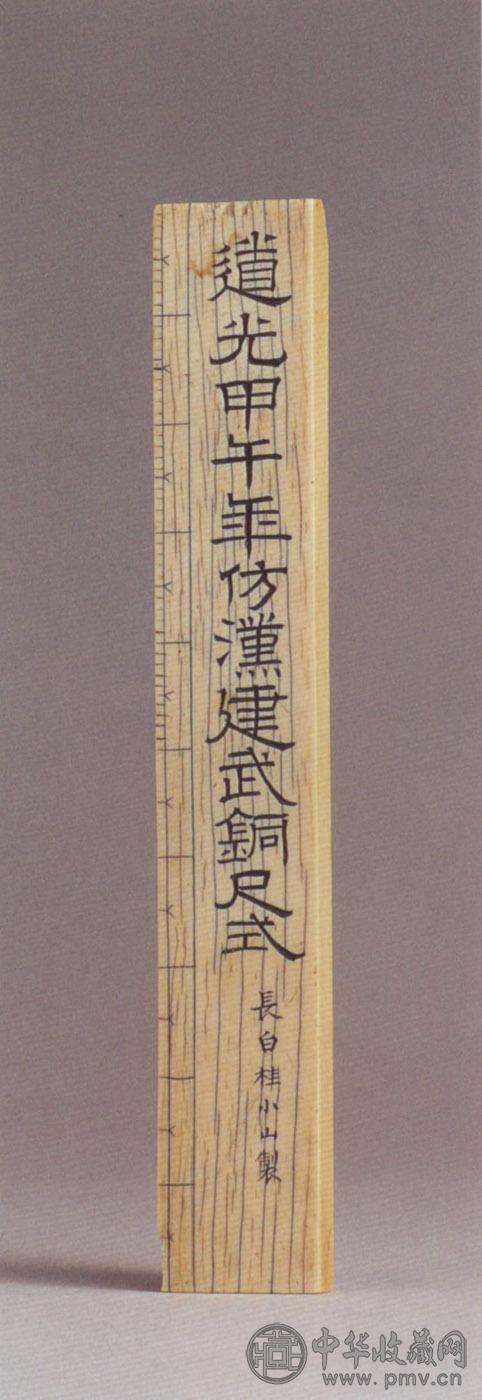 道光甲午年仿漢建武銅尺式
長白桂小山製
中华收藏网
www.pmv.cn